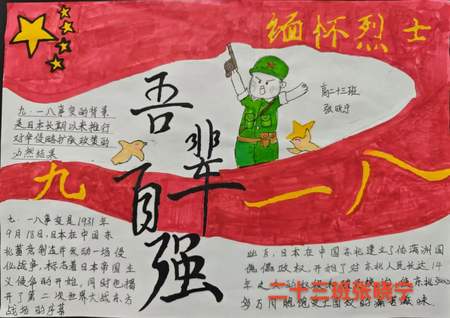 缅怀烈士
高二十三班
张晓宁
九·一八事变的背景
是日本长期以来推行
对华侵略扩张政策的
必然结果
吾辈自强
九一八
九·一八事变是1931年
9月18日,日本在中国东
北蓄意制造并发动一场侵
华战争,标志着日本帝国主
义侵华的开始,同时也揭
开了第二次世界大战东方
战场的序幕
此后,日本在中国东北建立了伪满洲国
傀儡政权,开始了对东北人民长达14
年之
东北3000
多万同胞饱受亡国奴的痛苦滋味
二十三班张晓宁